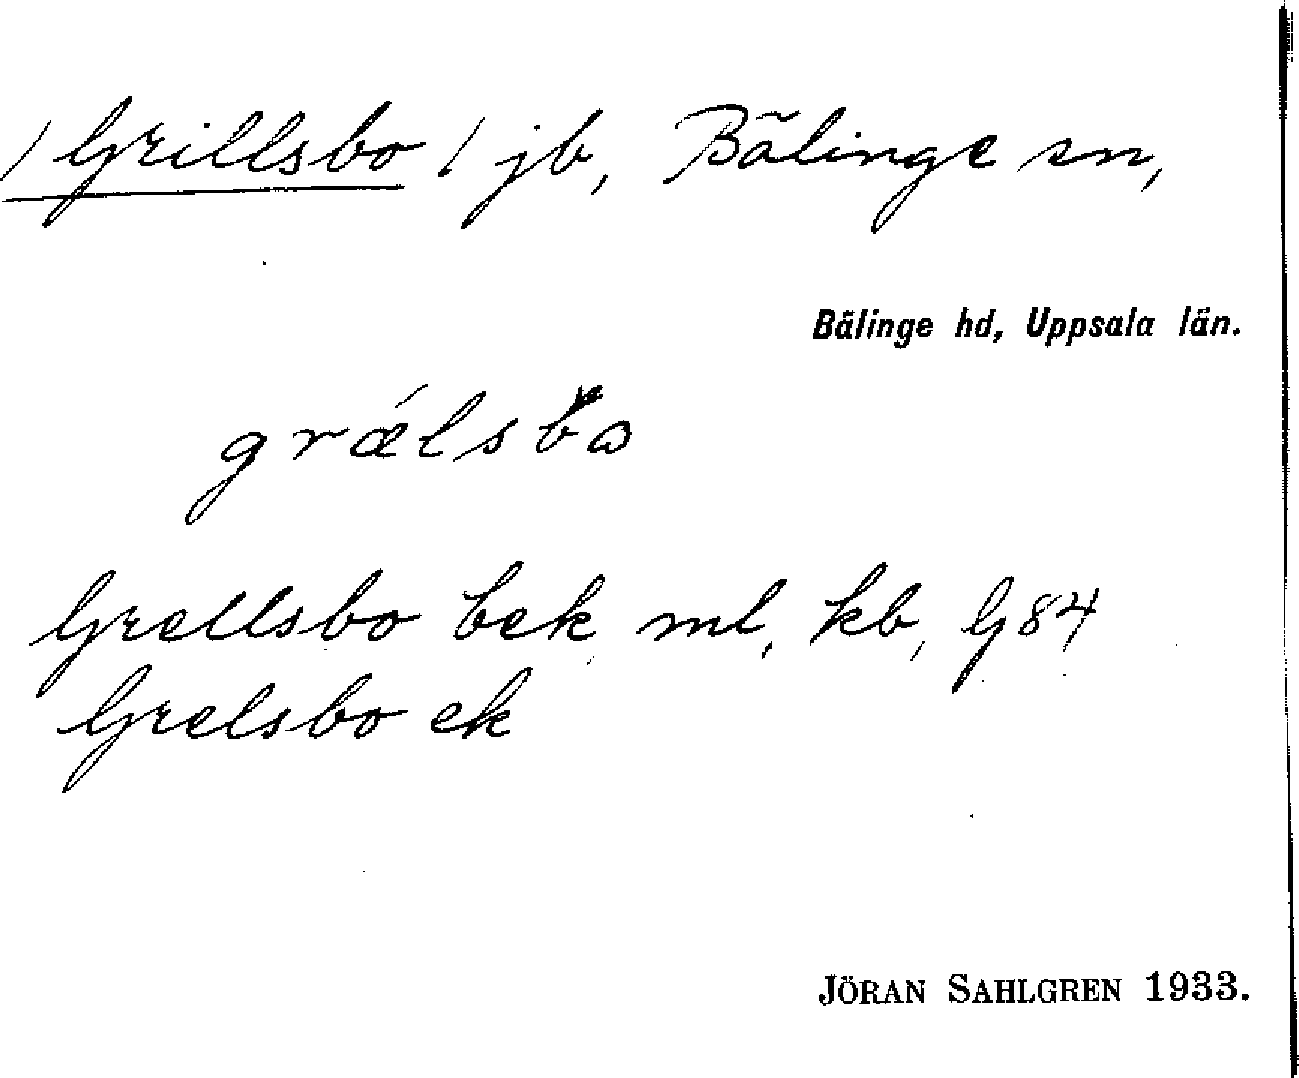 / Grillsbo / jb, Bälinge sn,
Bälinge hd, Uppsala län.
grǽlsbω
Grellsbo bek, ml, kb, G84
Grelsbo ek
JÖRAN SAHLGREN 1933.